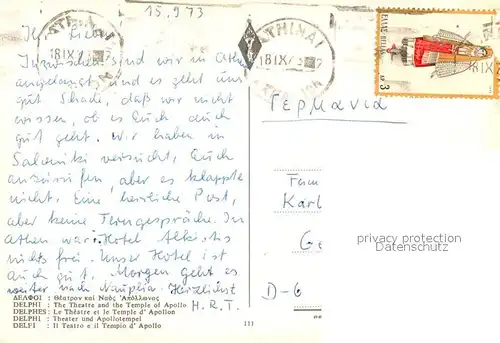 15.9.73
Ihr Lieben
Inzwischen sind wir in Athen
angelangt und es geht uns
gut. Schade, daß wir nicht
wissen, ob es Euch auch
gut geht. Wir haben in
Saloniki versucht, Euch
anzurufen, aber es klappte
nicht. Eine herrliche Post,
aber keine Ferngespräche. In
Athen war Hotel Alkistis
nichts frei. Unser Hotel ist
auch gut. Morgen geht es
weiter nach Nauplia. Herzlichst
H. R. T.
ΔΕΛΦΟΙ : Θέατρον καὶ Ναὸς 'Απόλλωνος
DELPHI : The Theatre and the Temple of Apollo
DELPHES : Le Théâtre et le Temple d'Apollon
DELPHI : Theater und Apollotempel
DELFI : Il Teatro e il Tempio d' Apollo
111
ΑΘΗΝΑΙ
18 IX 73
ATHINAI
18 IX 73 17
3
Γερμανία
Fam
Karl
Ge
D-6
privacy protection
Datenschutz